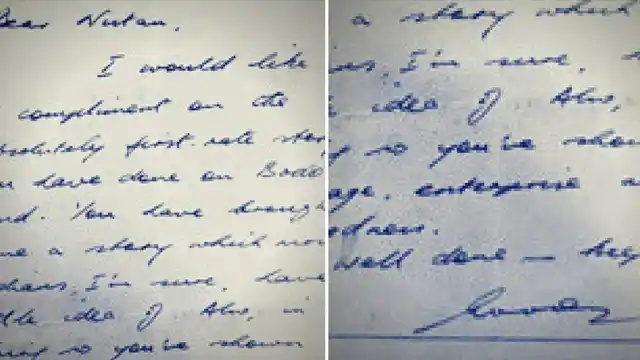 Dear Nutan,
I would like
compliment on the
bsolutely first-rate stor
u have done on Bodo
nd. You have brough
me a story which mo
dians, I'm sure, have
ttle idea of. Also, in
ing so you've shown
a story which
ns, I'm sure,
idea of. Also,
g so you've show
age, enterprise
Well done —